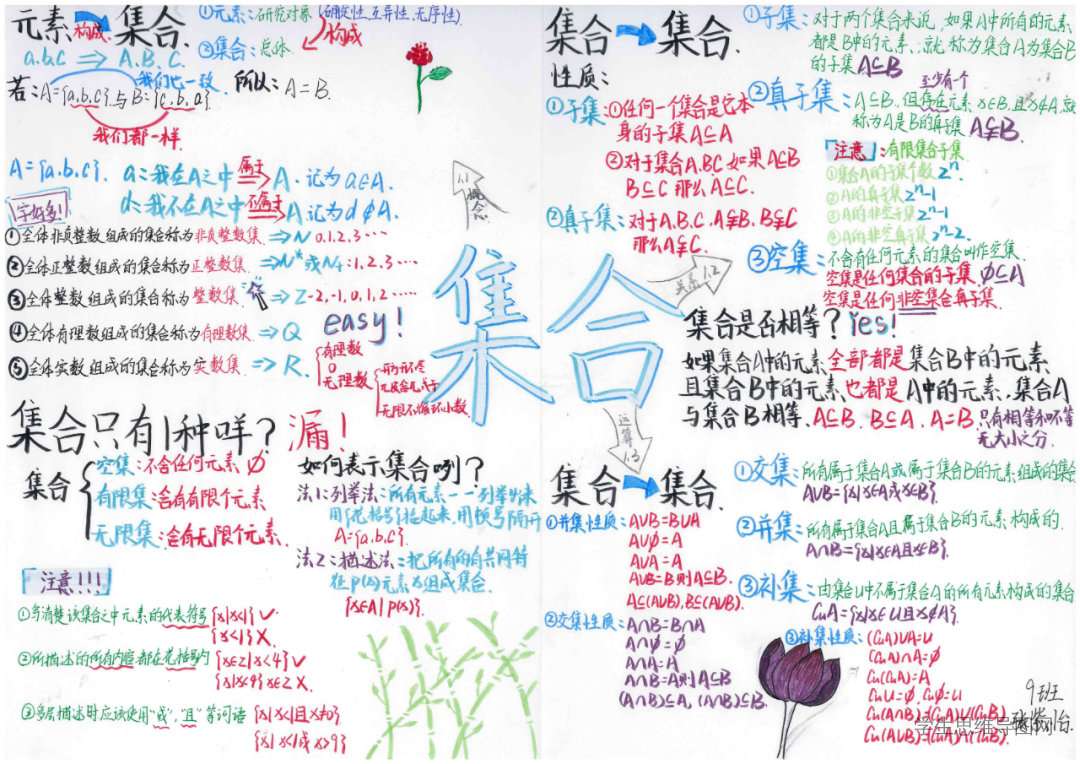 元素 构成 集合.
①元素:研究对象(确定性,互异性,无序性)
②集合:总体 构成
a.b.c ⇒ A.B.C.
我们也一致
若:A={a.b.c}.与B={c.b.a}. 所以:A=B.
我们都一样.
A={a.b.c}. a:我在A之中 属于 A.记为a∈A.
d:我不在A之中 不属于 A.记为d∉A.
①全体非负整数组成的集合称为非负整数集 ⇒N 0.1.2.3……
②全体正整数组成的集合称为正整数集 ⇒N*或N+:1.2.3……
③全体整数组成的集合称为整数集 ⇒Z-2,-1,0,1,2……
④全体有理数组成的集合称为有理数集 ⇒Q
easy!
⑤全体实数组成的集合称为实数集 ⇒R.
有理数
0
无理数
无限不循环小数
集合只有1种咩?漏!
集合
空集:不含任何元素 ∅
有限集:含有有限个元素.
无限集:含有无限个元素.
如何表示集合咧?
法1:列举法:所有元素一一列举出来
用{花括号}括起来.用顿号隔开
A={a.b.c}
法2:描述法:把所有的有共同特
征p(x)元素x组成集合.
{x∈A|p(x)}.
注意!!!
①弄清楚该集合之中元素的代表符号{x|x<1}✓
{x<1}X
②所描述的所有内容都在花括号内{x∈Z|x<4}✓
{x|x<9}x∈Z X.
③多层描述时应该使用“或”,“且”等词语{x|x<1且x≠0}
{x|x<1或x>9}
1.1
概念
集合
关系1.2
运算
1.3
集合 集合.
性质:
①子集:①任何一个集合是它本
身的子集A⊆A
②对于集合A.BC如果A⊆B
B⊆C那么A⊆C.
②真子集:对于A.B.C.A⫋B.B⫋C
那么A⫋C.
①子集:对于两个集合来说,如果A中所有的元素
都是B中的元素.就称为集合A为集合B
的子集A⊆B
至少有一个
②真子集:A⊆B.但存在元素x∈B.且x∉A.就
称为A是B的真子集A⫋B.
注意:有限集合子集
①集合A的子集个数2ⁿ.
②A的真子集2ⁿ-1
③A的非空子集2ⁿ-1
④A的非空真子集2ⁿ-2.
③空集:不含有任何元素的集合叫作空集.
空集是任何集合的子集.∅⊆A
空集是任何非空集合真子集.
集合是否相等?Yes!
如果集合A中的元素全部都是集合B中的元素
且集合B中的元素也都是A中的元素.集合A
与集合B相等.A⊆B.B⊆A.A=B.只有相等和不等
无大小之分.
集合 集合.
①并集性质:A∪B=B∪A
A∪∅=A
A∪A=A
A∪B=B则A⊆B.
A⊆(A∪B),B⊆(A∪B).
②交集性质:A∩B=B∩A
A∩∅=∅
A∩A=A
A∩B=A则A⊆B
(A∩B)⊆A,(A∩B)⊆B.
①交集:所有属于集合A或属于集合B的元素组成的集合
A∪B={x|x∈A或x∈B}.
②并集:所有属于集合A且属于集合B的元素构成的.
A∩B={x|x∈A且x∈B}.
③补集:由集合U中不属于集合A的所有元素构成的集合
CuA={x|x∈U且x∉A}.
③补集性质:(CuA)∪A=U
(CuA)∩A=∅
Cu(CuA)=A
CuU=∅.Cu∅=U
Cu(A∩B)=(CuA)∪(CuB)
Cu(A∪B)=(CuA)∩(CuB).
9班
学生思维导图网